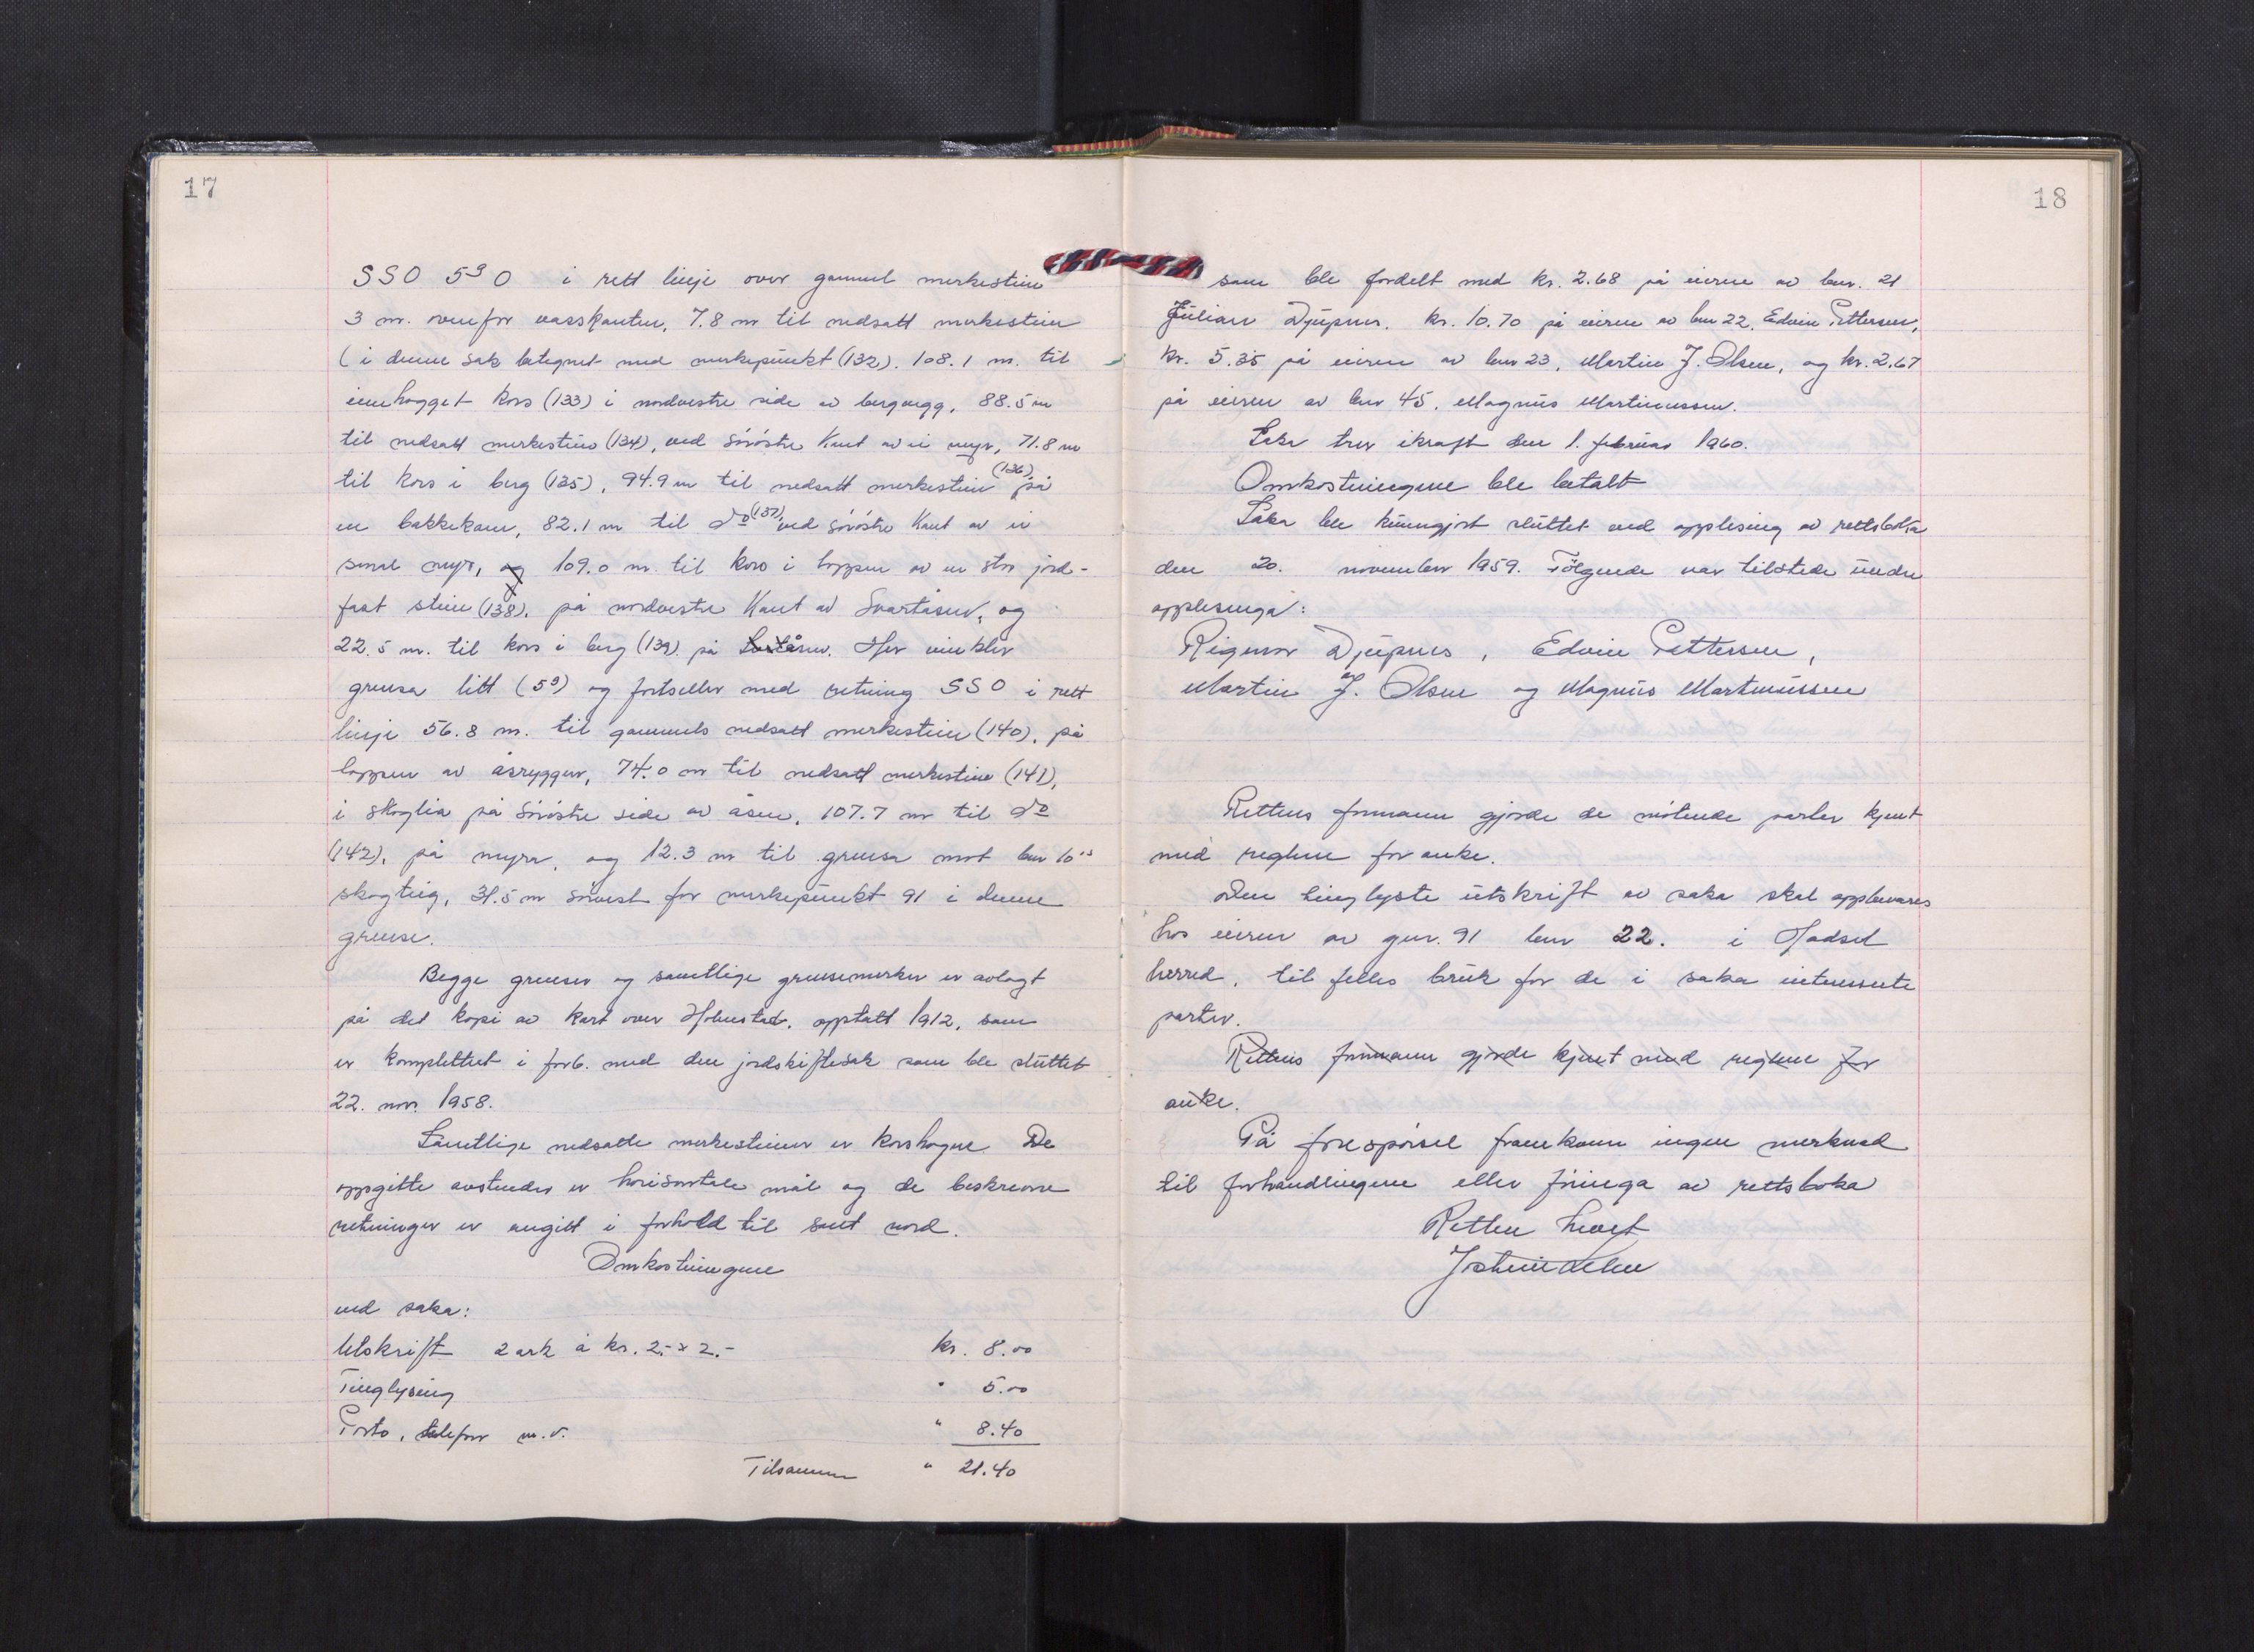 17
SSO 5⁹ O i rett linje over gammel merkestein
3 m. ovenfor vasskanten, 7.8 m til nedsatt merkestein
(i denne sak betegnet med merkepunkt (132). 108.1 m. til
innhogget kors (133) i nordvestre side av bergvegg, 88.5 m
til nedsatt merkestein (134), ved söröstre kant av ei myr, 71.8 m
til kors i berg (135), 94.9 m til nedsatt merkestein (136) på
en bakkekam, 82.1 m til do (137), ved söröstre kant av ei
smal myr, og 109.0 m. til kors i toppen av en stor jord-
fast stein (138), på nordvestre kant av Svartåsen, og
22.5 m. til kors i berg (139) på Svartåsen. Her vinkler
grensa litt (5⁹) og fortsetter med retning SSO i rett
linje 56.8 m. til gammels nedsatt merkestein (140), på
toppen av åsryggen, 74.0 m til nedsatt merkestein (141),
i skoglia på söröstre side av åsen, 107.7 m til do
(142), på myra, og 12.3 m til grensa mot bnr 10's
skogteig, 31.5 m sörvest for merkepunkt 91 i denne
grense.
Begge grenser og samtlige grensemerker er avlagt
på det kopi av kart over Holmstad, opptatt 1912, som
er komplettert i forb. med den jordskiftesak som ble sluttet
22. nov. 1958.
Samtlige nedsatte merkesteiner er korshogne. De
oppgitte avstander er horisontale mål og de beskrevne
retninger er angitt i forhold til sant nord.
Omkostningene
ved saka:
Utskrift 2 ark à kr. 2.- x 2.- kr. 8.00
Tinglysing " 5.00
Porto, telefon m.v. " 8.40
Tilsammen " 21.40
18
som ble fordelt med kr. 2.68 på eieren av bnr. 21
Julian Djupnes. kr. 10.70 på eieren av bnr 22, Edvin Pettersen,
kr. 5.35 på eieren av bnr 23, Martin J. Olsen, og kr. 2.67
på eieren av bnr 45, Magnus Martinussen.
Saka trer ikraft den 1. februar 1960.
Omkostningene ble betalt
Saka ble kunngjort sluttet ved opplesing av rettsboka
den 20. november 1959. Fölgende var tilstede under
opplesinga:
Rigmor Djupnes, Edvin Pettersen,
Martin J. Olsen og Magnus Martinussen
Rettens formann gjorde de mötende parter kjent
med reglene for anke.
Den tinglyste utskrift av saka skal oppbevares
hos eieren av gnr. 91 bnr 22. i Hadsel
herred, til felles bruk for de i saka interesserte
parter.
Rettens formann gjorde kjent med reglene for
anke.
På forespörsel framkom ingen merknad
til forhandlingene eller föringa av rettsboka
Retten hevet